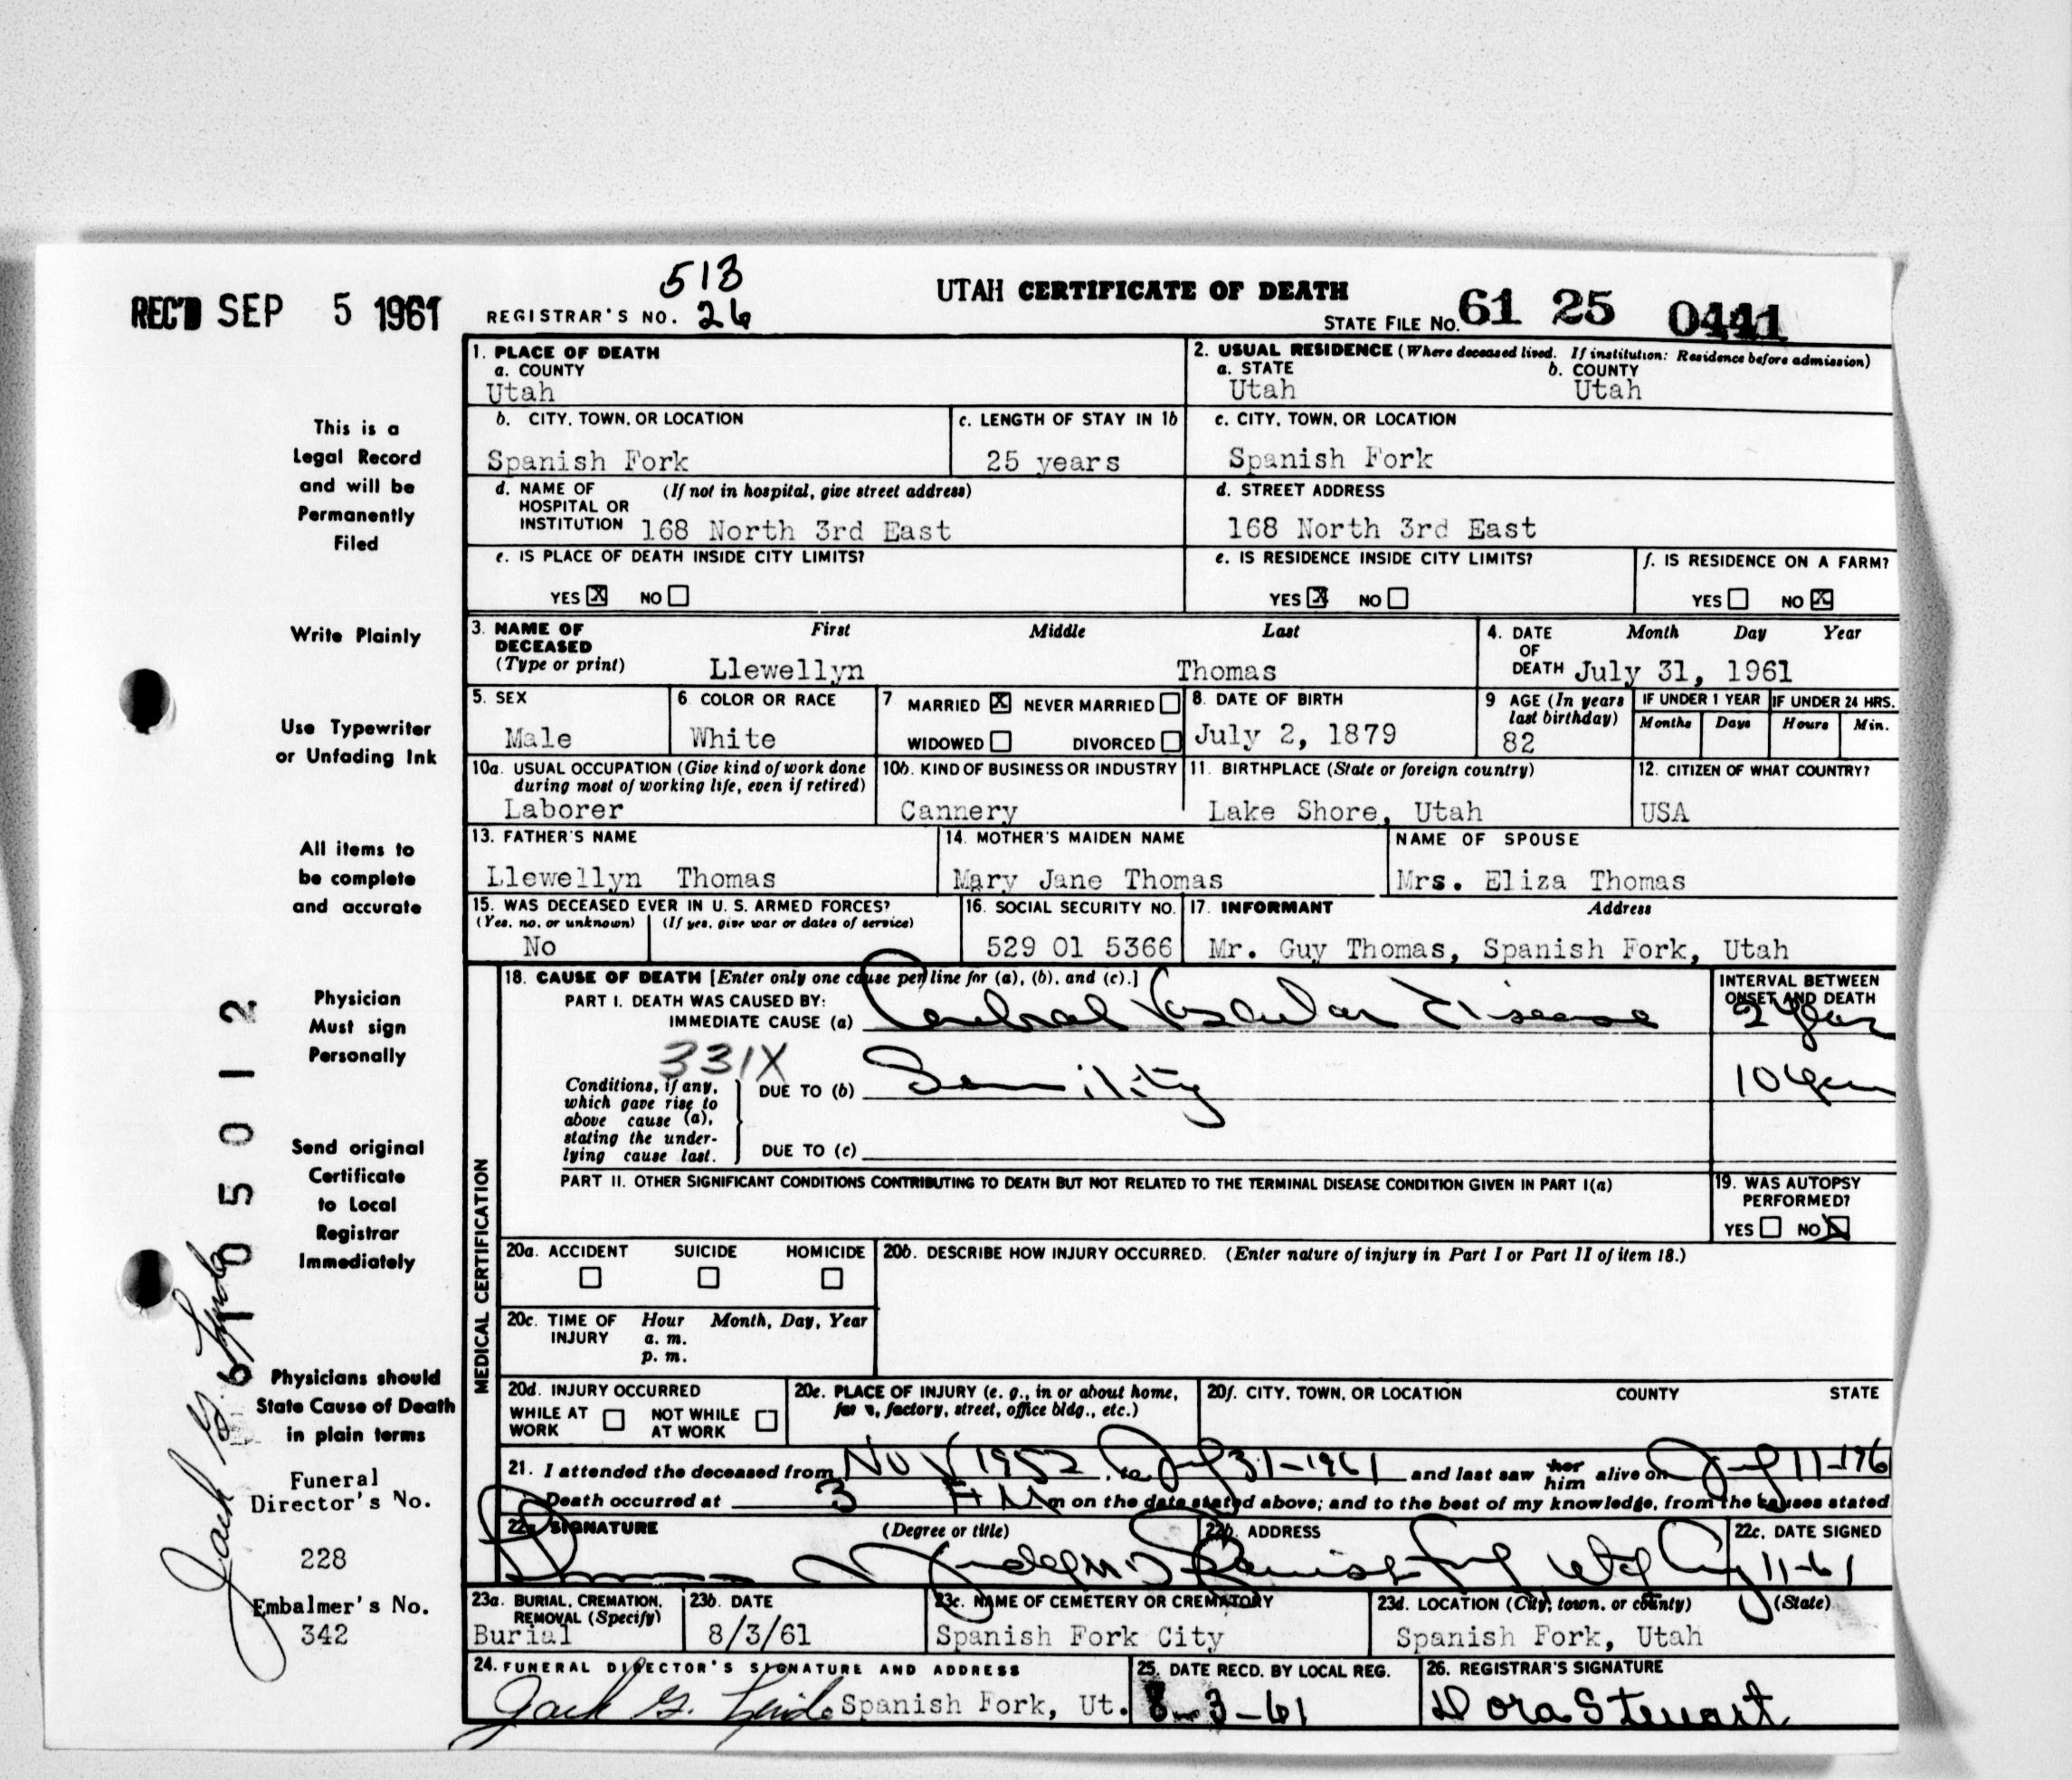 513
REC'D SEP 5 1961
REGISTRAR'S NO. 26
UTAH CERTIFICATE OF DEATH
STATE FILE NO. 61 25 0441
1. PLACE OF DEATH
a. COUNTY
Utah
2. USUAL RESIDENCE (Where deceased lived. If institution: Residence before admission)
a. STATE b. COUNTY
Utah Utah
b. CITY, TOWN, OR LOCATION
Spanish Fork
c. LENGTH OF STAY IN 1b
25 years
c. CITY, TOWN, OR LOCATION
Spanish Fork
d. NAME OF (If not in hospital, give street address)
HOSPITAL OR
INSTITUTION 168 North 3rd East
d. STREET ADDRESS
168 North 3rd East
e. IS PLACE OF DEATH INSIDE CITY LIMITS?
YES X NO
e. IS RESIDENCE INSIDE CITY LIMITS?
YES X NO
f. IS RESIDENCE ON A FARM?
YES NO X
3. NAME OF First Middle Last
DECEASED
(Type or print) Llewellyn Thomas
4. DATE Month Day Year
OF
DEATH July 31, 1961
5. SEX
Male
6 COLOR OR RACE
White
7 MARRIED X NEVER MARRIED
WIDOWED DIVORCED
8. DATE OF BIRTH
July 2, 1879
9 AGE (In years
last birthday)
82
IF UNDER 1 YEAR IF UNDER 24 HRS.
Months Days Hours Min.
10a. USUAL OCCUPATION (Give kind of work done
during most of working life, even if retired)
Laborer
10b. KIND OF BUSINESS OR INDUSTRY
Cannery
11. BIRTHPLACE (State or foreign country)
Lake Shore, Utah
12. CITIZEN OF WHAT COUNTRY?
USA
13. FATHER'S NAME
Llewellyn Thomas
14. MOTHER'S MAIDEN NAME
Mary Jane Thomas
NAME OF SPOUSE
Mrs. Eliza Thomas
15. WAS DECEASED EVER IN U. S. ARMED FORCES?
(Yes, no, or unknown) (If yes, give war or dates of service)
No
16. SOCIAL SECURITY NO.
529 01 5366
17. INFORMANT Address
Mr. Guy Thomas, Spanish Fork, Utah
MEDICAL CERTIFICATION
18. CAUSE OF DEATH [Enter only one cause per line for (a), (b), and (c).]
PART I. DEATH WAS CAUSED BY:
IMMEDIATE CAUSE (a) Cerebral Vascular Disease
INTERVAL BETWEEN
ONSET AND DEATH
2 year
331X
Conditions, if any,
which gave rise to
above cause (a),
stating the under-
lying cause last.
DUE TO (b) Senility
10 year
DUE TO (c)
PART II. OTHER SIGNIFICANT CONDITIONS CONTRIBUTING TO DEATH BUT NOT RELATED TO THE TERMINAL DISEASE CONDITION GIVEN IN PART I(a)
19. WAS AUTOPSY
PERFORMED?
YES NO X
20a. ACCIDENT SUICIDE HOMICIDE
20b. DESCRIBE HOW INJURY OCCURRED. (Enter nature of injury in Part I or Part II of item 18.)
20c. TIME OF Hour Month, Day, Year
INJURY a. m.
p. m.
20d. INJURY OCCURRED
WHILE AT NOT WHILE
WORK AT WORK
20e. PLACE OF INJURY (e. g., in or about home,
farm, factory, street, office bldg., etc.)
20f. CITY, TOWN, OR LOCATION COUNTY STATE
21. I attended the deceased from Nov 1952, to July 31-1961 and last saw her him alive on July 11-196
Death occurred at 3 A M m on the date stated above; and to the best of my knowledge, from the causes stated
22a. SIGNATURE (Degree or title)
M D
22b. ADDRESS
Spanish Fork Utah
22c. DATE SIGNED
11-61
23a. BURIAL, CREMATION,
REMOVAL (Specify)
Burial
23b. DATE
8/3/61
23c. NAME OF CEMETERY OR CREMATORY
Spanish Fork City
23d. LOCATION (City, town, or county) (State)
Spanish Fork, Utah
24. FUNERAL DIRECTOR'S SIGNATURE AND ADDRESS
Jack G. Spanish Fork, Ut.
25. DATE RECD. BY LOCAL REG.
8-3-61
26. REGISTRAR'S SIGNATURE
Dora Stewart
This is a
Legal Record
and will be
Permanently
Filed
Write Plainly
Use Typewriter
or Unfading Ink
All items to
be complete
and accurate
Physician
Must sign
Personally
Send original
Certificate
to Local
Registrar
Immediately
Physicians should
State Cause of Death
in plain terms
Funeral
Director's No.
228
Embalmer's No.
342
Jack G.